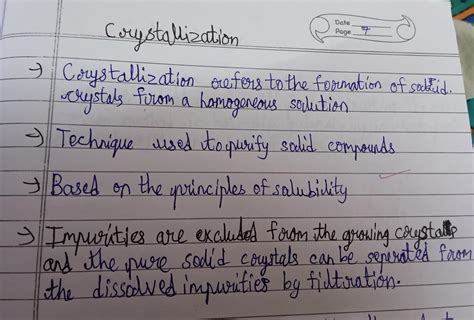 Date
Page 7
Crystallization
→ Crystallization refers to the formation of solid.
crystals from a homogeneous solution
→ Technique used to purify solid compounds
→ Based on the principles of solubility
→ Impurities are excluded from the growing crystals
and the pure solid crystals can be seperated from
the dissolved impurities by filtration.